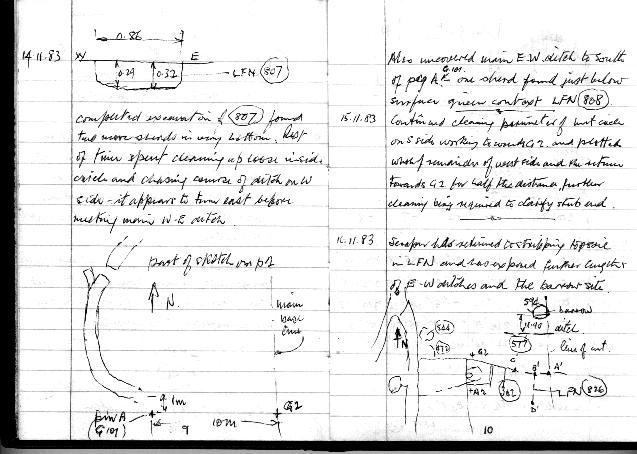 0.86
14.11.83 W E
0.29 0.32 LFN 807
completed excavation of 807 found
two more sherds in very bottom. Rest
of time spent cleaning up loose inside
circle and chasing course of ditch on W
side - it appears to turn east before
meeting main W-E ditch.
part of sketch on p2
N.
main
base
line
1m
pin A
(G101)
9 10m
G2
Also uncovered main E-W ditch to South
of peg A. G101 one sherd found just below
surface given context LFN 808
15.11.83 Continued cleaning perimeter of
on S side working towards G2 and plotted
whole remainder of west side and the return
towards G2 for half the distance further
cleaning being required to clarify stub end.
16.11.83 Scraper has returned to stripping topsoil
in LFN and has exposed further lengths
of E-W ditches and the barrow site.
barrow
ditch
577
line of
N
G2
A2
B' A'
D'
LFN 826
10